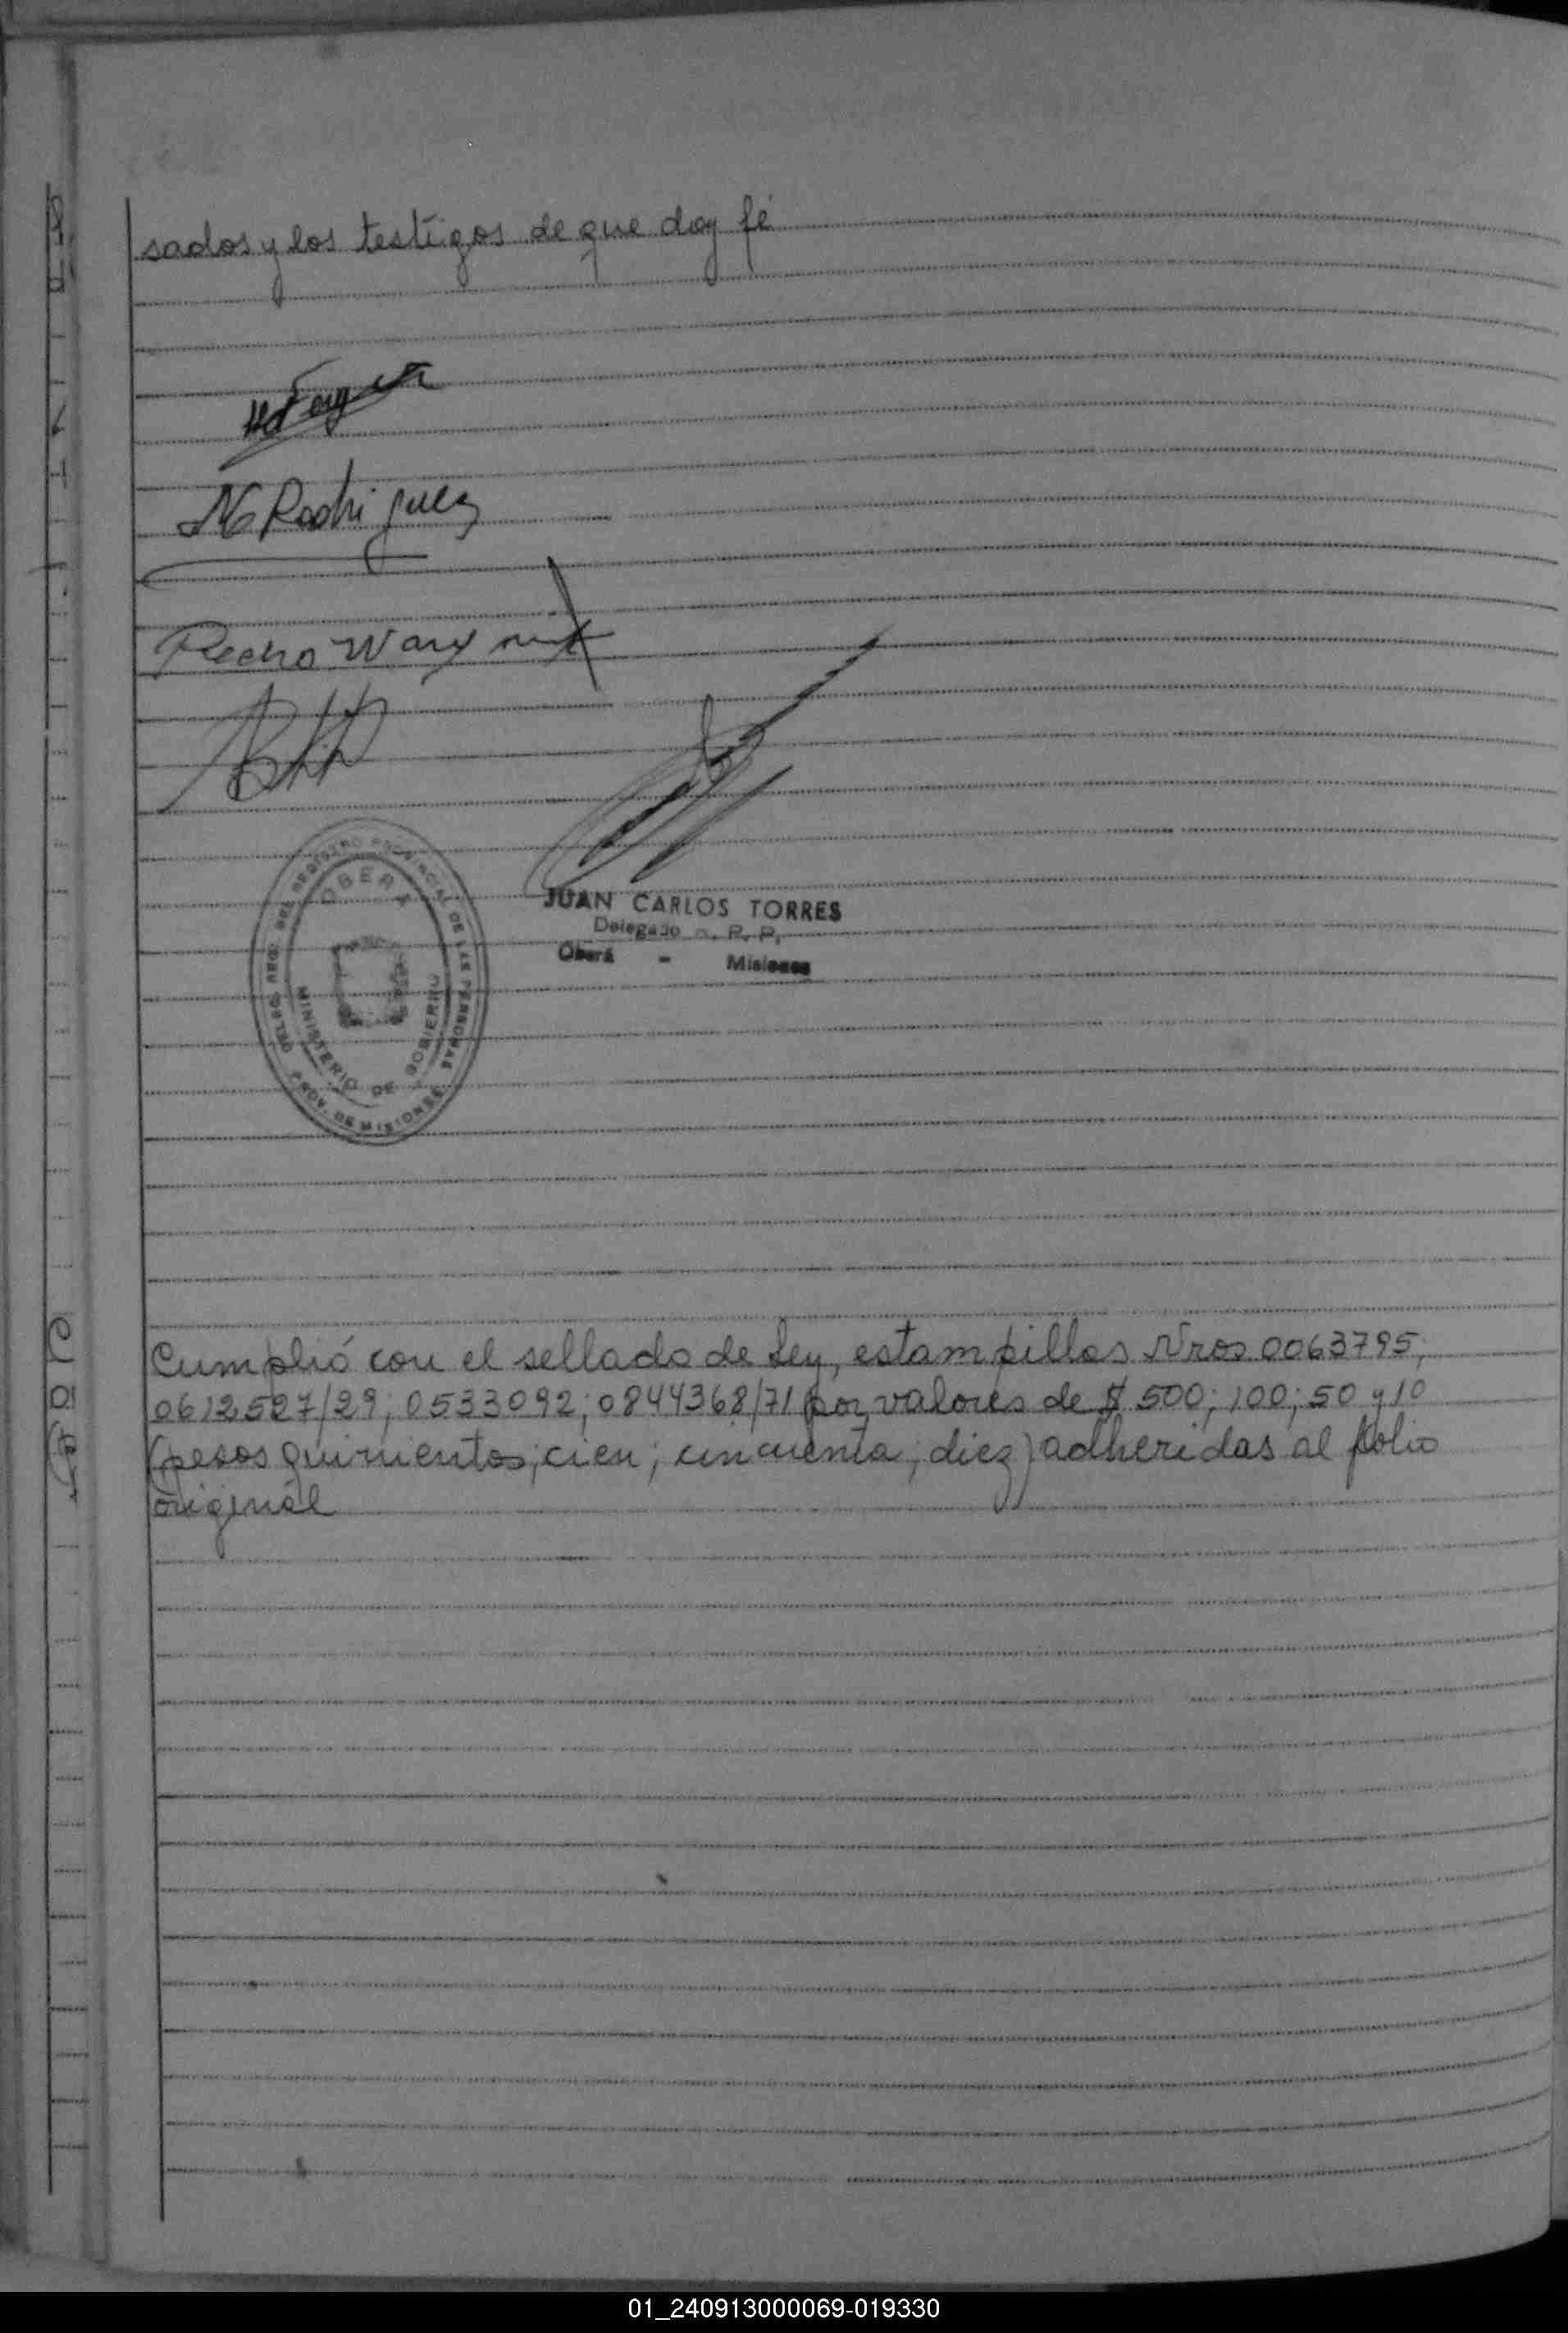 sados y los testigos de que doy fé
N Rodriguez
Pedro
JUAN CARLOS TORRES
Delegado R. P. P.
Oberá - Misiones
DELEG. DEL REGISTRO PROVINCIAL DE LAS PERSONAS
OBERA
MINISTERIO DE GOBIERNO
PROV. DE MISIONES
Cumplió con el sellado de Ley, estampillas Nros 0063795;
0612527/29; 0533092; 0844368/71 por valores de $ 500; 100; 50 y 10
(pesos quinientos; cien; cincuenta; diez) adheridas al folio
original
01_240913000069-019330